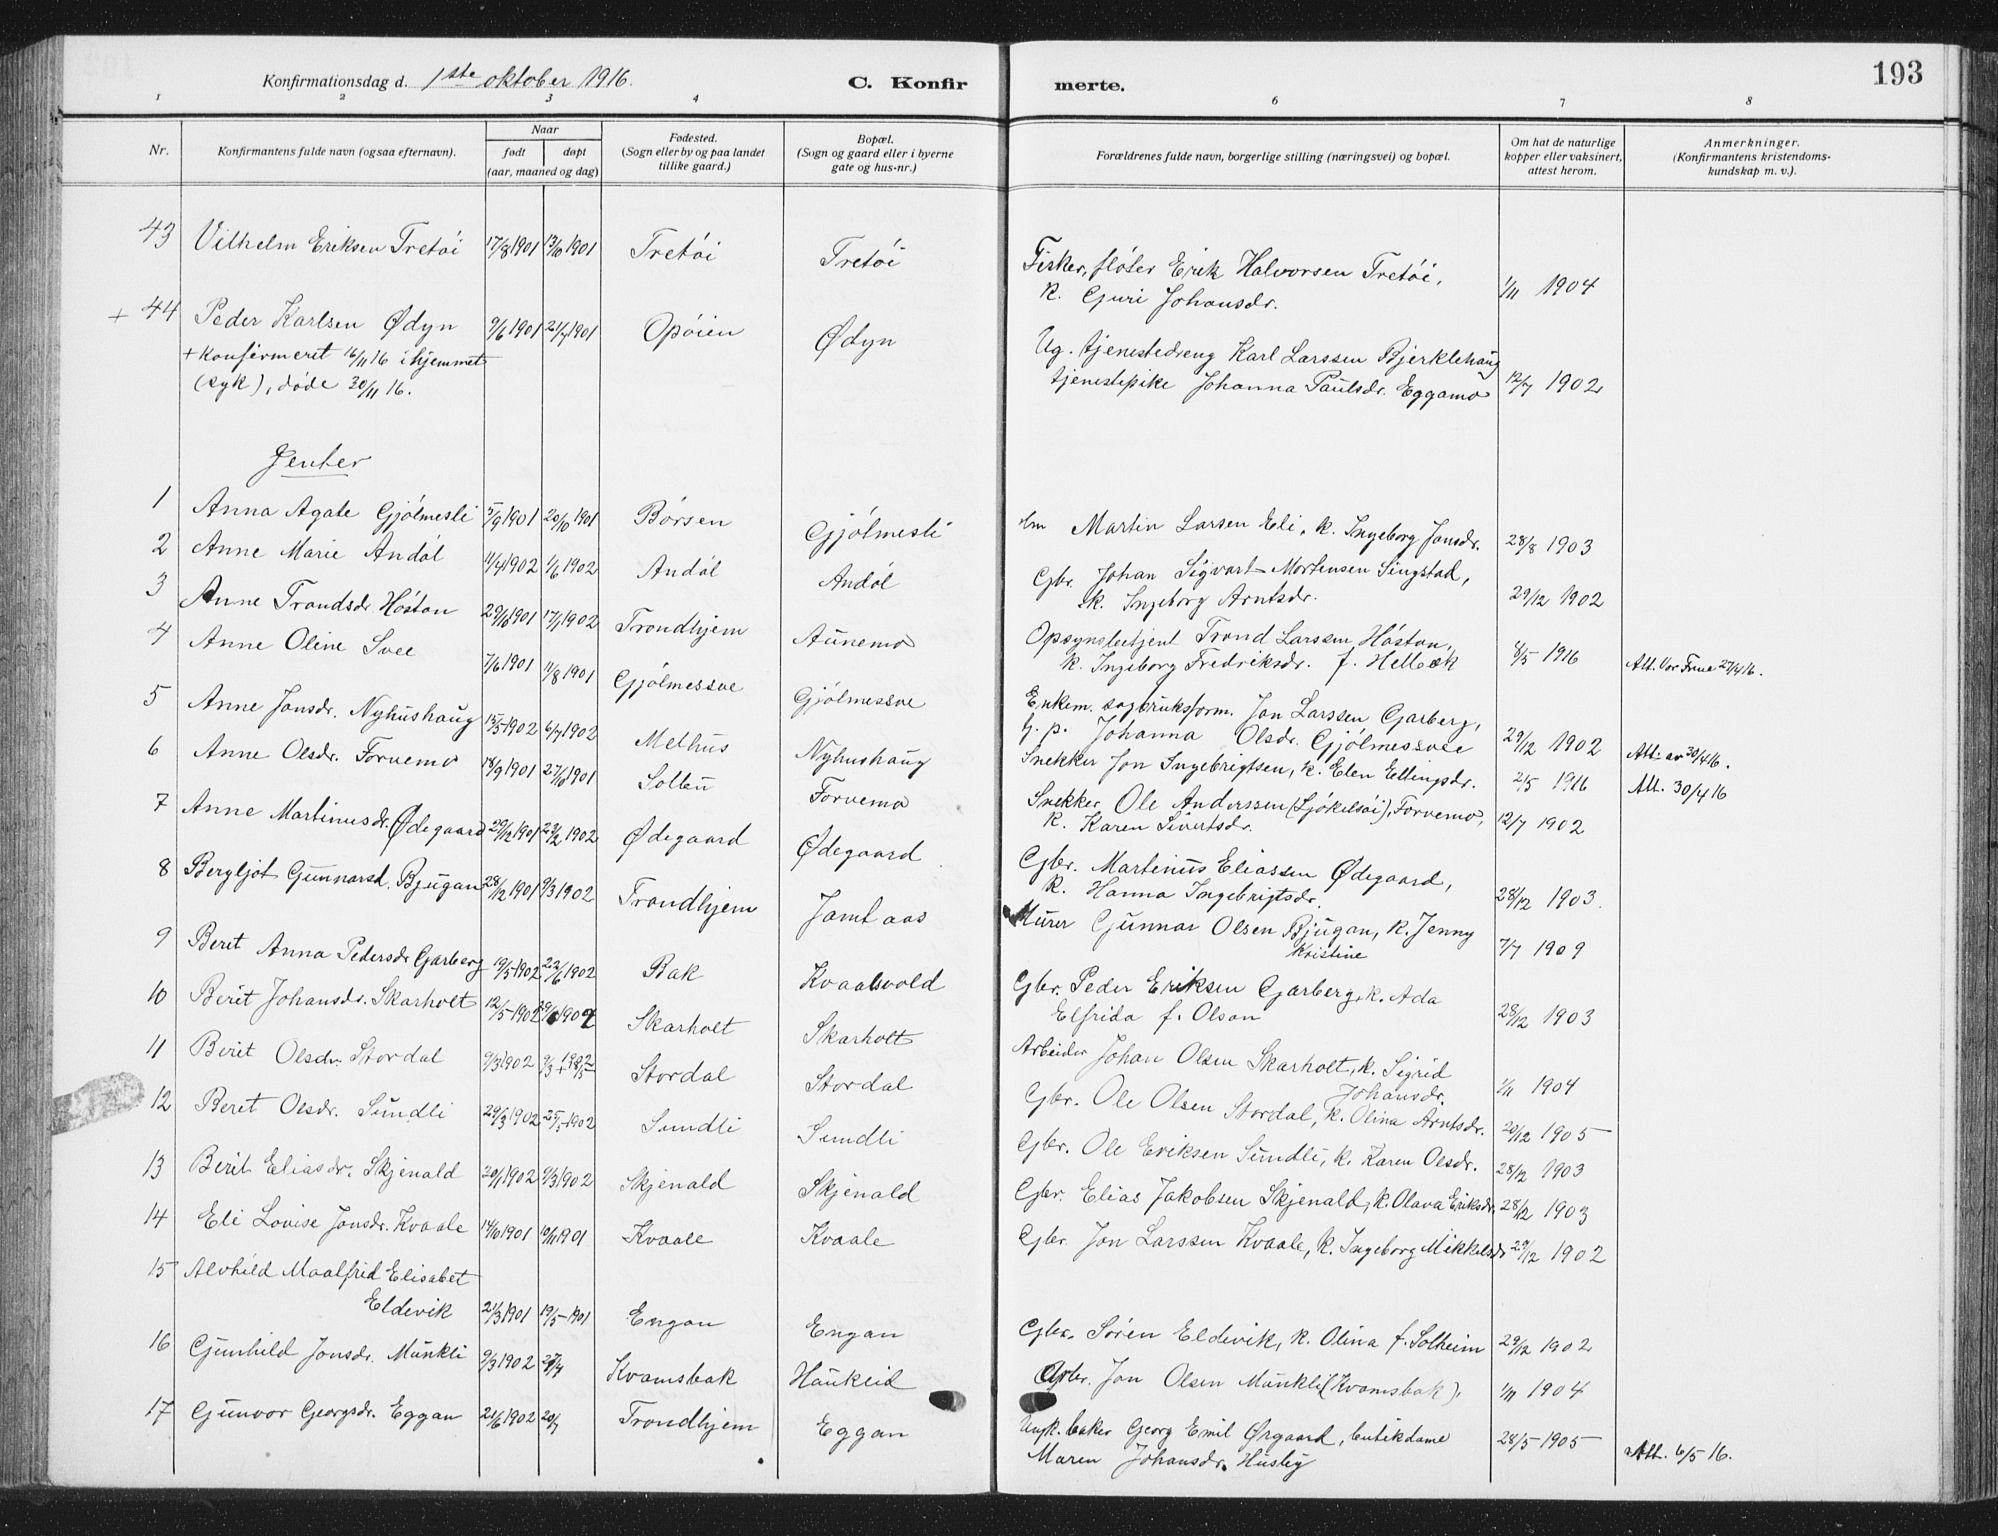 Konfirmationsdag d. 1ste oktober 1916. C. Konfirmerte. 193
1 2 3 4 6 7 8
Nr. Konfirmantens fulde navn (ogsaa efternavn). Naar født døpt (aar, maaned og dag) Fødested. (Sogn eller by og paa landet tillike gaard.) Bopæl. (Sogn og gaard eller i byerne gate og hus-nr.) Forældrenes fulde navn, borgerlige stilling (næringsvei) og bopæl. Om hat de naturlige kopper eller vaksinert, attest herom. Anmerkninger. (Konfirmantens kristendomskundskap m. v.).
43 Vilhelm Eriksen Tretøi 17/8 1901 13/10 1901 Tretøi Tretøi Fisker, fløter Erik Halvorsen Tretøi,
k. Guri Johansdr. 1/11 1904
+ 44 Peder Karlsen Ødyn 9/6 1901 21/7 1901 Opøien Ødyn Ug. tjenestedreng Karl Larssen Bjerklehaug
+ Konfirmeret 16/11 16 i hjemmet tjenestepike Johanna Paulsdr. Eggamo 12/7 1902
(syk), døde 30/11 16.
Jenter
1 Anna Agate Gjølmesli 5/9 1901 20/10 1901 Børsen Gjølmesli Hm Martin Larsen Eli, k. Ingeborg Jonsdr. 28/8 1903
2 Anne Marie Andøl 11/4 1902 1/6 1902 Andøl Andøl Gbr. Johan Sigvart Mortensen Singstad,
k. Ingeborg Arntsdr. 29/12 1902
3 Anne Trondsdr. Høston 29/10 1901 17/1 1902 Trondhjem Aunemo Opsynsbetjent Trond Larssen Høston,
k. Ingeborg Fredriksdr. f. Helbæk 8/5 1916 Att. Vor Frue 27/4 16.
4 Anne Oline Svee 7/6 1901 11/8 1901 Gjølmessve Gjølmessve Enkem. sagbruksform. Jon Larssen Garberg,
tj. p. Johanna Olsdr. Gjølmessvee 29/12 1902 Att. av 30/4 16.
5 Anne Jonsdr. Nyhushaug 15/5 1902 6/7 1902 Melhus Nyhushaug Snekker Jon Ingebrigtsen, k. Elen Ellingsdr. 2/5 1916 Att. 30/4 16
6 Anne Olsdr. Forvemo 18/9 1901 27/10 1901 Solbu Forvemo Snekker Ole Anderssen (Sjøkelsøi), Forvemo,
k. Karen Sivertsdr. 12/7 1902
7 Anne Martinusdr. Ødegaard 29/12 1901 23/2 1902 Ødegaard Ødegaard Gbr. Martinus Eliassen Ødegaard,
k. Hanna Ingebrigtsdr. 28/12 1903.
8 Bergljot Gunnarsd. Bjugan 28/12 1901 9/3 1902 Trondhjem Jamtaas Murer Gunnar Olsen Bjugan, k. Jenny
Kristine 7/7 1909
9 Beret Anna Pedersdr Garberg 19/5 1902 22/6 1902 Bak Kvaalsvold Gbr. Peder Eriksen Garberg, k. Ada
Elfrida f. Olson 28/12 1903
10 Berit Johansdr. Skarholt 12/5 1902 29/6 1902 Skarholt Skarholt Arbeider Johan Olsen Skarholt, k. Sigrid
Johansdr. 1/11 1904
11 Berit Olsdr. Stordal 9/3 1902 9/3 + 18/5 1902 Stordal Stordal Gbr. Ole Olsen Stordal, k. Olina Arntsdr. 20/12 1905
12 Beret Olsdr. Sundli 29/3 1902 25/5 1902 Sundli Sundli Gbr. Ole Eriksen Sundli, k. Karen Olsdr. 28/12 1903
13 Berit Eliasdr. Skjenald 20/1 1902 9/3 1902 Skjenald Skjenald Gbr. Elias Jakobsen Skjenald, k. Olava Eriksdr. 28/12 1903
14 Eli Lovise Jonsdr. Kvaale 14/10 1901 10/11 1901 Kvaale Kvaale Gbr. Jon Larssen Kvaale, k. Ingeborg Mikkelsdr 29/12 1902
15 Alvhild Maalfrid Elisabet
Eldevik 21/3 1901 19/5 1901 Engan Engan Gbr. Søren Eldevik, k. Olina f. Solheim 29/12 1902
16 Gunhild Jonsdr. Munkli 9/3 1902 27/4 Kvamsbak Haukeid Gbr. Jon Olsen Munkli (Kvamsbak), 1/11 1904
17 Gunvor Georgsdr. Eggan 21/6 1902 20/7 Trondhjem Eggan Ungk. baker Georg Emil Ørgaard, butikdame
Maren Johansdr. Husby 28/5 1905 Att. 6/5 16.